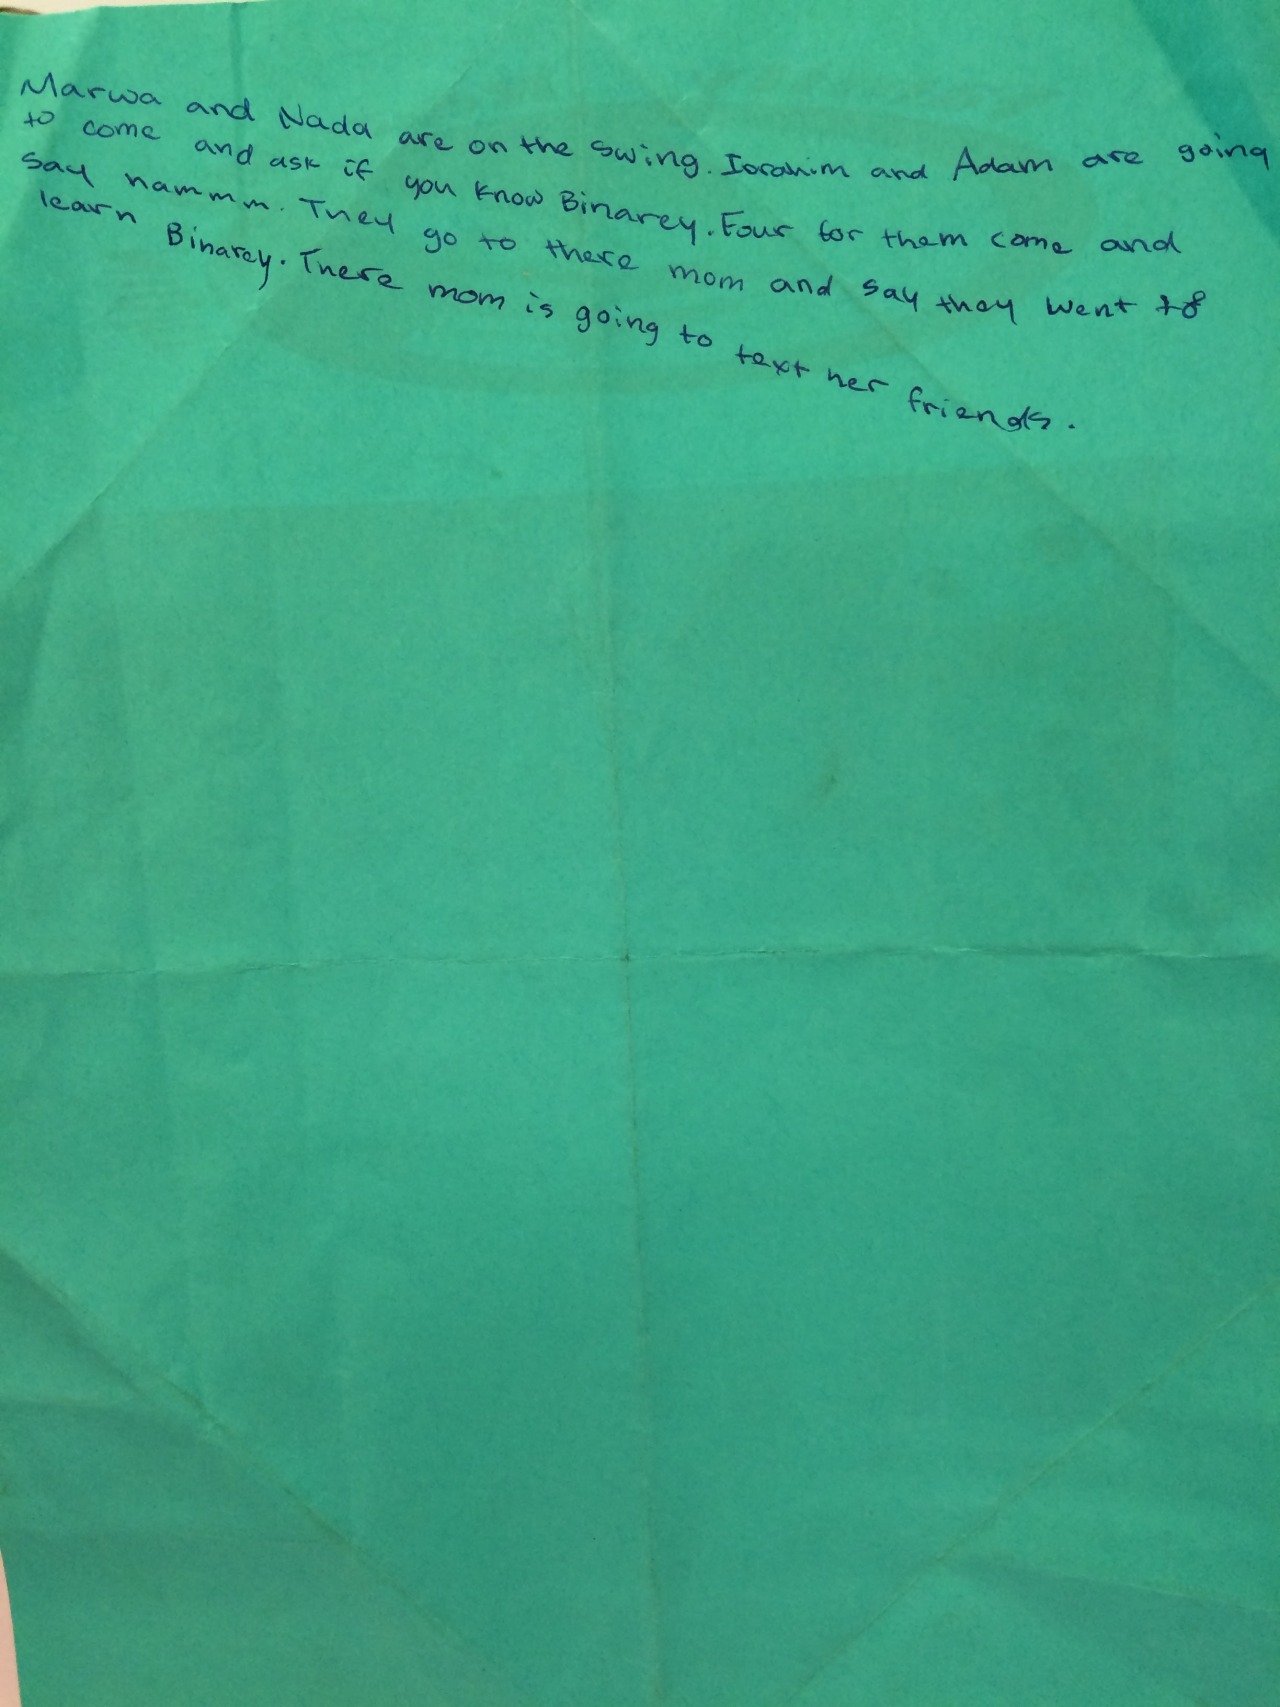 Marwa and Nada are on the swing. Ibrahim and Adam are going
to come and ask if you know Binarey. Four for them come and
say hammm. They go to there mom and say they went to
learn Binarey. There mom is going to text her friends.